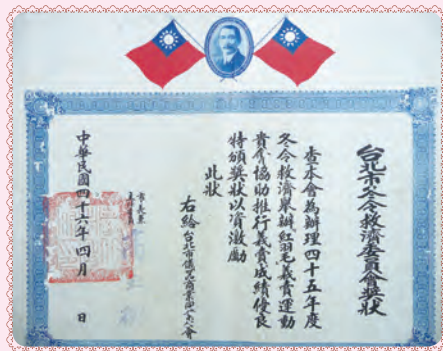 台北市冬令救濟委員會獎狀
查本會為辦理四十五年度
冬令救濟舉辦紅羽毛義賣運動
貴會協助推行義賣成績優良
特頒獎狀以資激勵
此狀
右給台北市儀商業同業公會
中華民國四十六年四月 日